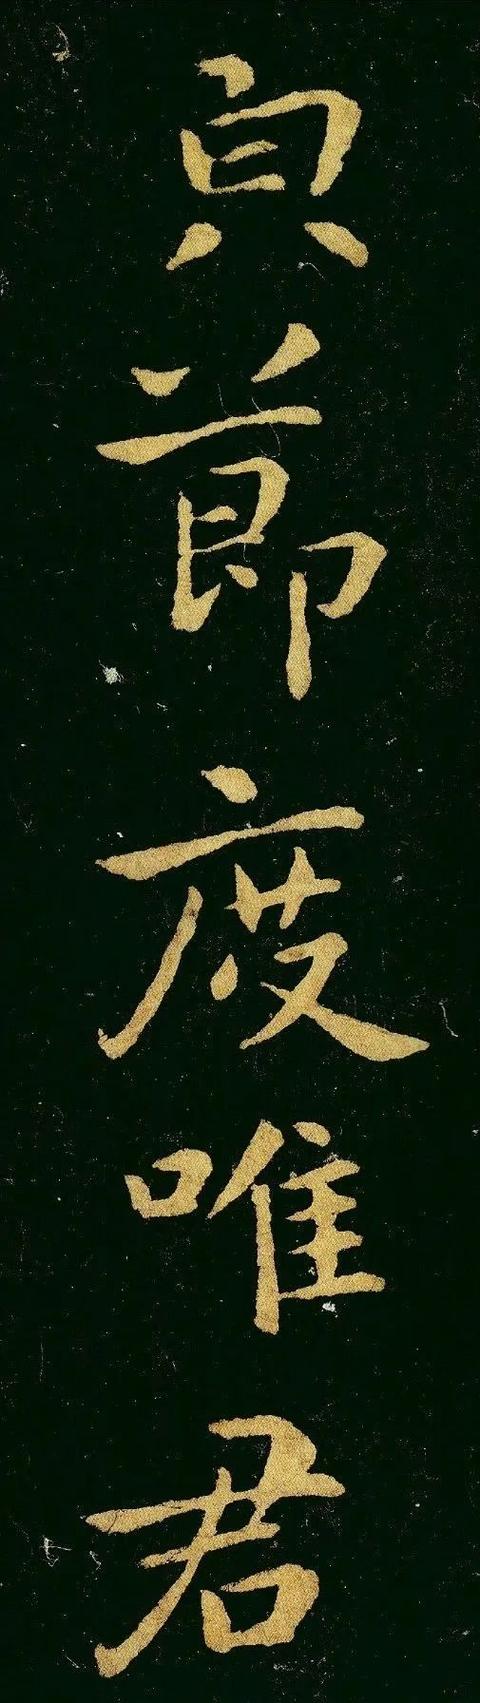 貞節度唯君